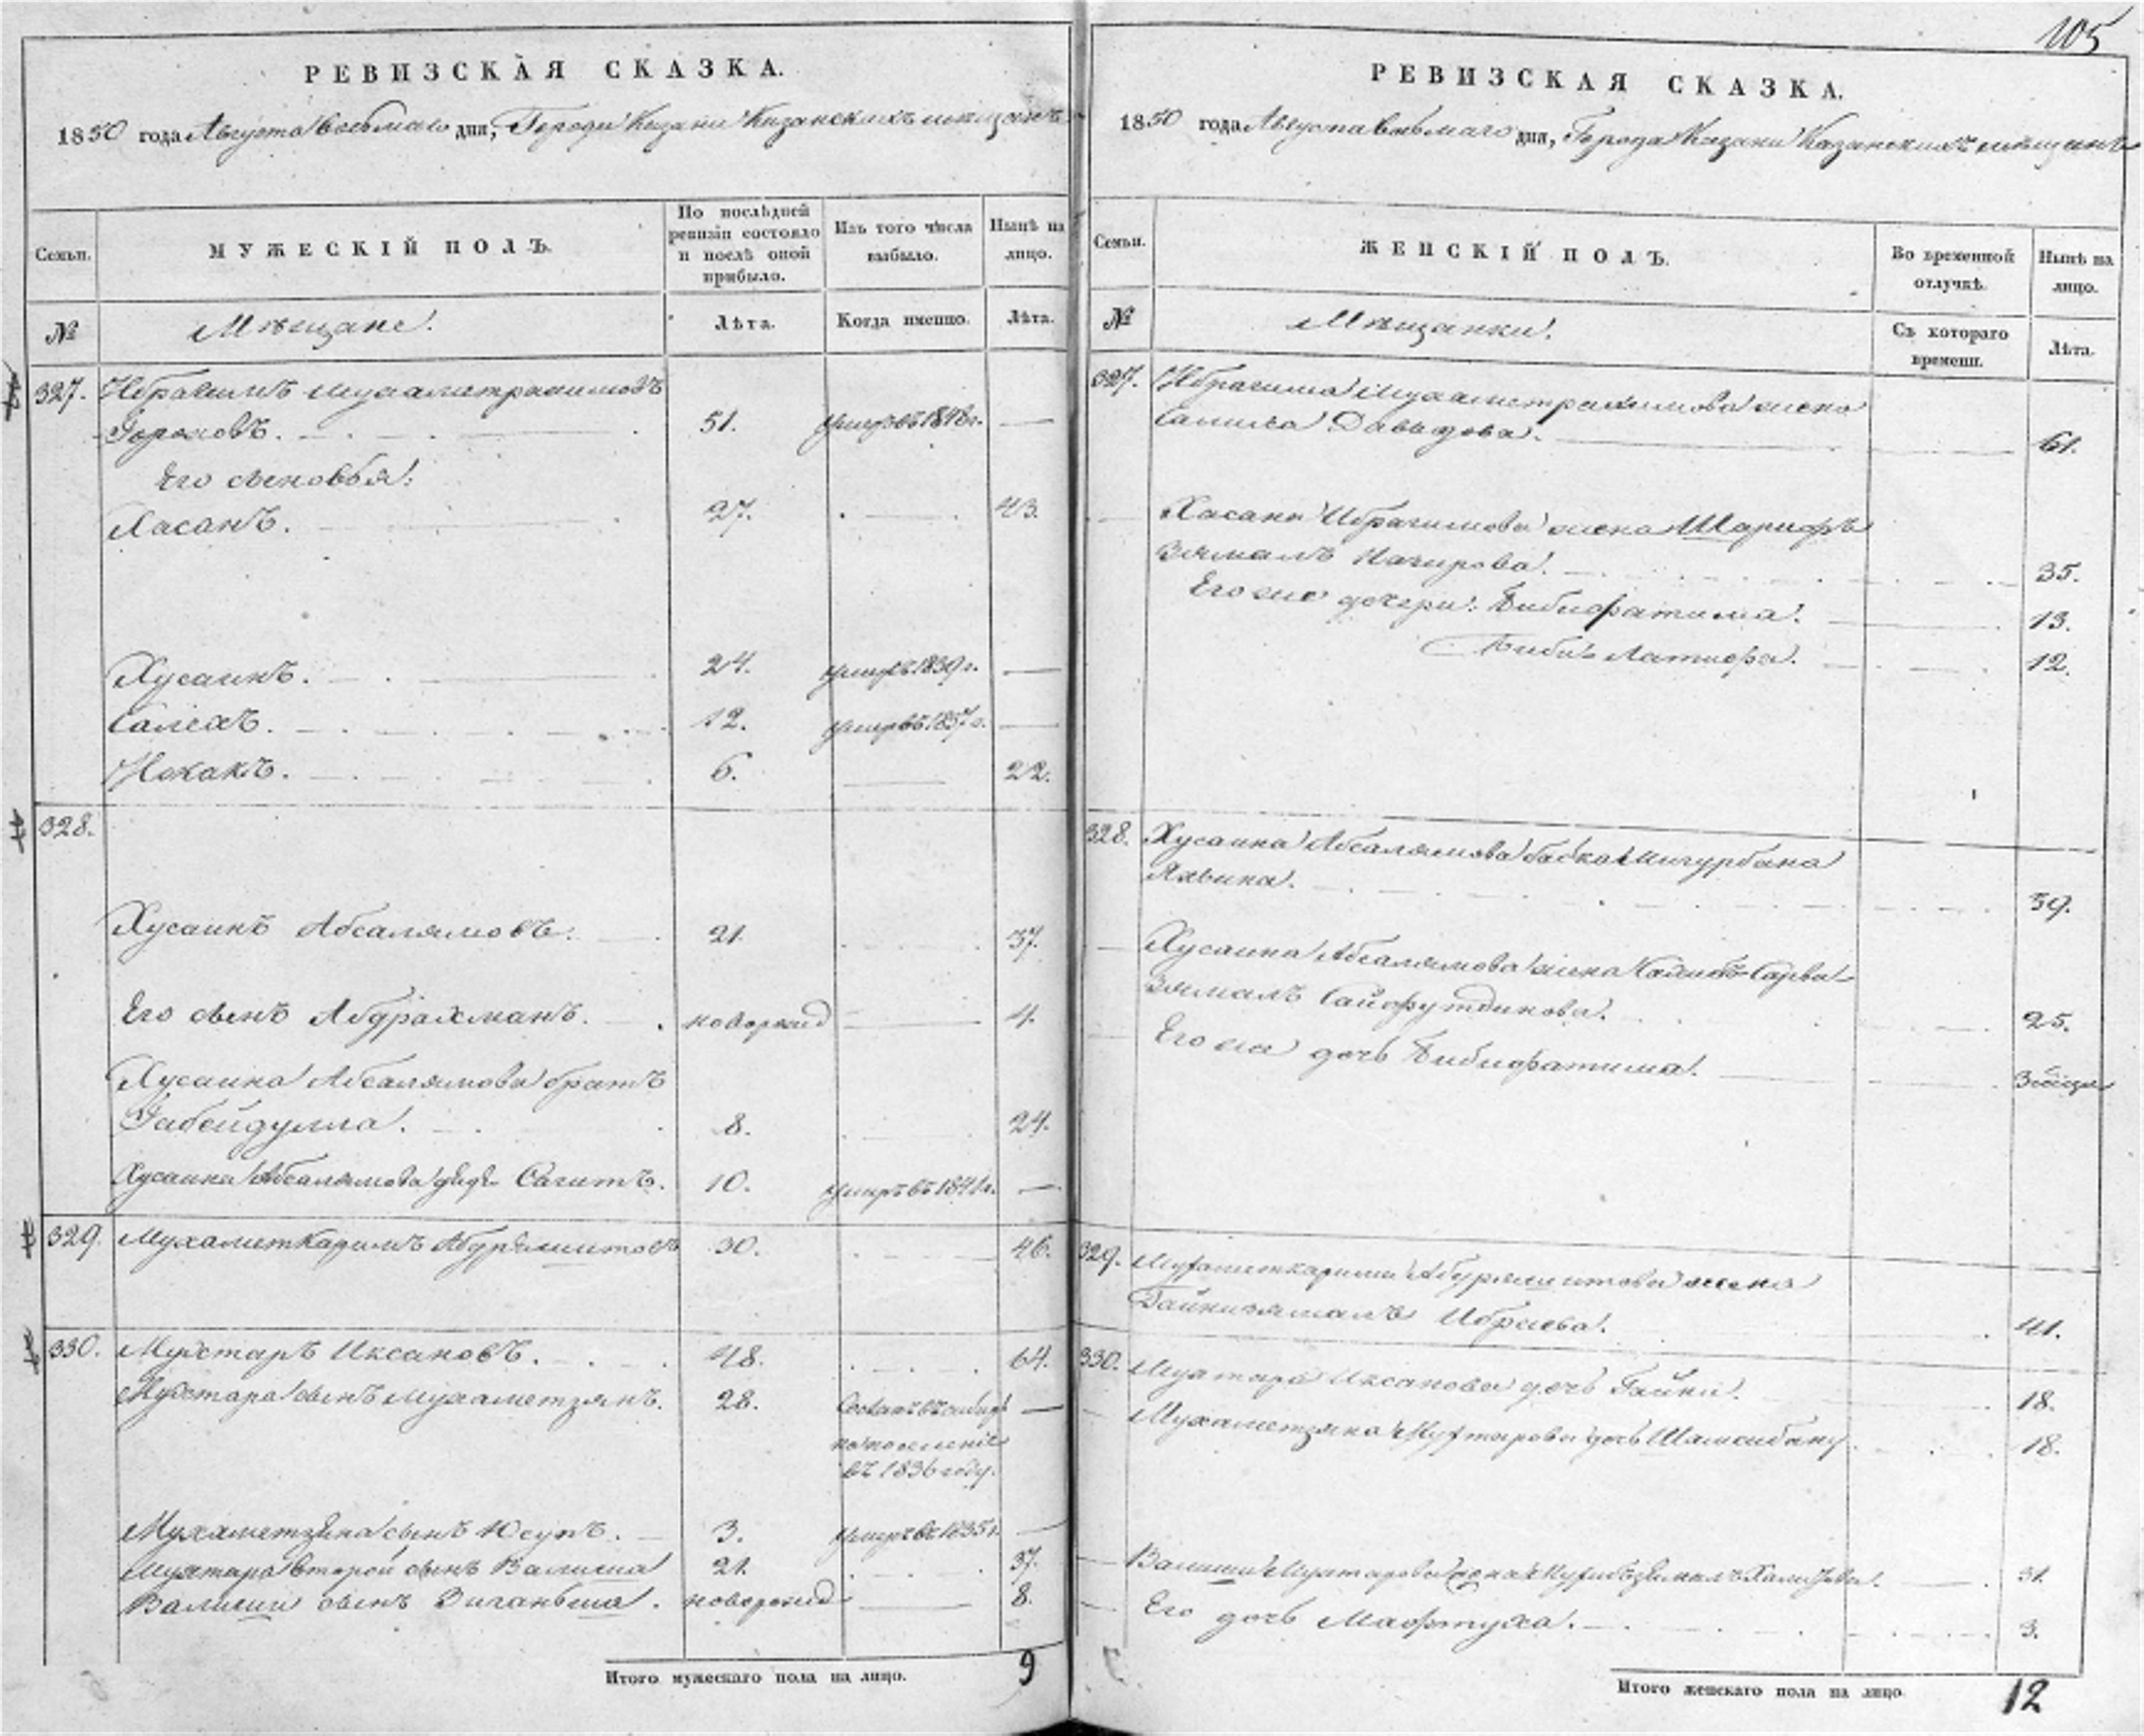 105
РЕВИЗСКАЯ СКАЗКА.
1850 года Августа восьмаго дня, Города Казани Казанскихъ мѣщанъ
Семьи.
МУЖЕСКІЙ ПОЛЪ.
По послѣдней ревизіи состояло и послѣ оной прибыло.
Изъ того числа выбыло.
Нынѣ на лицо.
№
Мѣщане.
Лѣта.
Когда именно.
Лѣта.
327. Ибрагимъ Мухаметрахимовъ
51. умеръ въ 1848 г. —
Его сыновья:
Хасанъ. 27. — 43.
Хусаинъ. 24. умеръ 1839 г. —
Салехъ. 12. умеръ въ 1837 г. —
Исхакъ. 6. — 22.
328.
Хусаинъ Абсалямовъ. 21. 37.
Его сынъ Абдрахманъ. новорожд — 4.
Хусаина Абсалямова братъ
Габейдулла. 8. 24.
Хусаина Абсалямова дядя Сагитъ. 10. умеръ въ 1841 г. —
329. Мухаметкаримъ 30. 46.
330. Мухтаръ Иксановъ. 48. 64.
Мухтара сынъ Мухаметзянъ. 28. Сосланъ въ Сибирь —
на поселеніе
въ 1836 году.
Мухаметзяна сынъ Юсупъ. 3. умеръ въ 1835 г. —
Мухтара второй сынъ Валиша 21. 37.
Валиши сынъ Зиганьша. новорожд — 8.
Итого мужескаго пола на лицо. 9
РЕВИЗСКАЯ СКАЗКА.
1850 года Августа восьмаго дня, Города Казани Казанскихъ мѣщанъ
Семьи.
ЖЕНСКІЙ ПОЛЪ.
Во временной отлучкѣ.
Нынѣ на лицо.
№
Мѣщанки.
Съ котораго времени.
Лѣта.
327. Ибрагима Мухаметрахимова жена
Давыдова. 61.
Хасана Ибрагимова жена Шарифъ
зямалъ 35.
Его же дочери: Бибифатима. 13.
Биби Латифа. 12.
328. Хусаина Абсалямова
39.
Хусаина Абсалямова жена
зямалъ Сайфутдинова. 25.
Его же дочь Бибифатима. 3 мѣсяца
329. Мухаметкарима жена
Гайнизямалъ 41.
330. Мухтара Иксанова дочь Гайни. 18.
Мухаметзяна Мухтарова дочь Шамсибану. 18.
Валиши Мухтарова жена 31.
Его дочь Мафтуха. 3.
Итого женскаго пола на лицо. 12